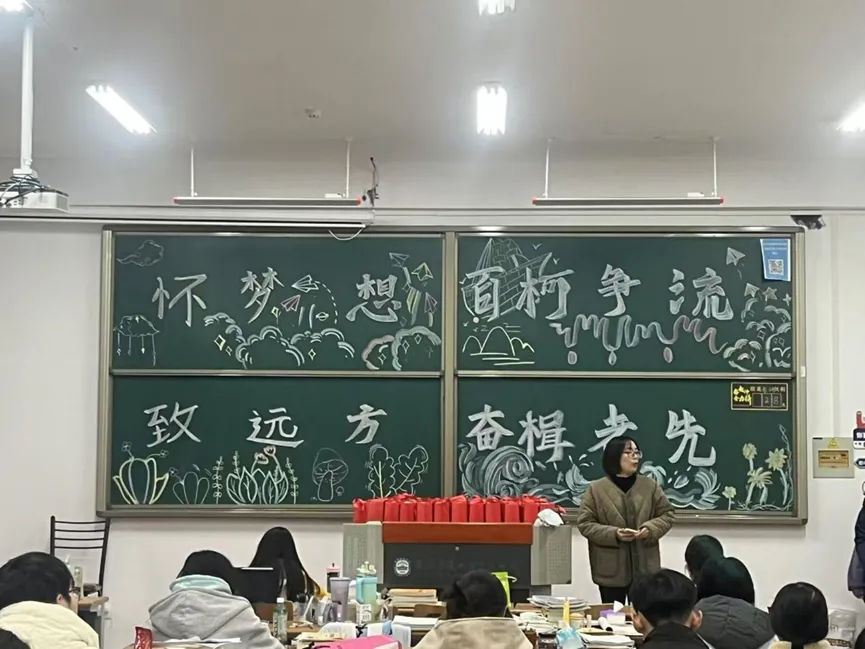 怀梦想
百柯争流
致远方
奋楫者先
28